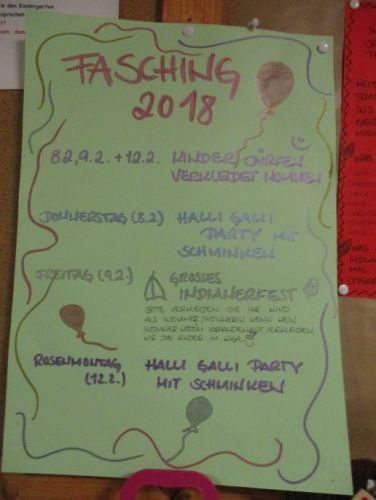 in den Kindergarten
FASCHING
2018
8.2, 9.2. + 12.2. KINDER DÜRFEN
VERKLEIDET KOMMEN
DONNERSTAG (8.2) HALLI GALLI
PARTY MIT
SCHMINKEN
FREITAG (9.2.) GROSSES
INDIANERFEST
BITTE VERKLEIDEN SIE IHR KIND
ALS INDIANER/INDIANERIN. WENN KEIN
VERKLEIDEN
WIR DIE KINDER IM KIGA.
ROSENMONTAG HALLI GALLI PARTY
(12.2.) MIT SCHMINKEN
WAS
WAS